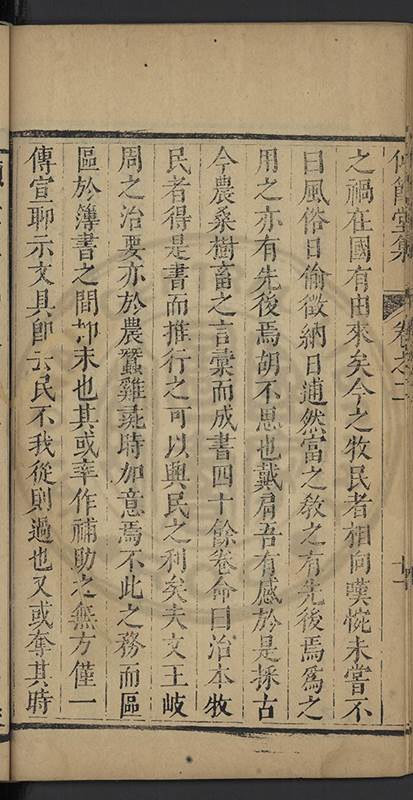 仰節堂集 卷之二
之禍在國有由來矣今之牧民者相向嘆惋未嘗不
曰風俗日偷徵納日逋然富之教之有先後焉為之
用之亦有先後焉胡不思也戴肩吾有感於是採古
今農桑樹畜之言彙而成書四十餘卷命曰治本牧
民者得是書而推行之可以興民之利矣夫文王岐
周之治要亦於農蠶雞彘時加意焉不此之務而區
區於簿書之間抑末也其或率作補助之無方僅一
傳宣聊示文具卽云民不我從則過也又或奪其時